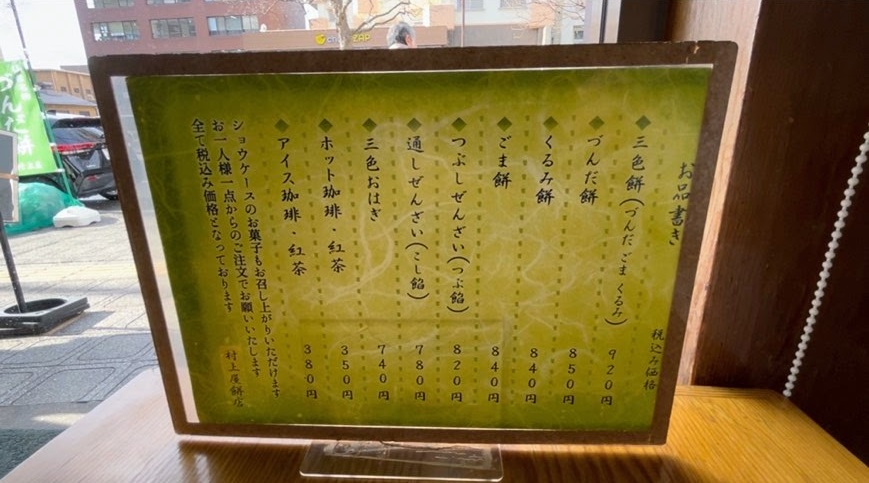 お品書き
税込み価格
◆三色餅(づんだ ごま くるみ) 920円
◆づんだ餅 850円
◆くるみ餅 840円
◆ごま餅 840円
◆つぶしぜんざい(つぶ餡) 820円
◆通しぜんざい(こし餡) 780円
◆三色おはぎ 740円
◆ホット珈琲・紅茶 350円
◆アイス珈琲・紅茶 380円
ショウケースのお菓子もお召し上がりいただけます
お一人様一点からのご注文でお願いいたします
全て税込み価格となっております
村上屋餅店
づんだ餅